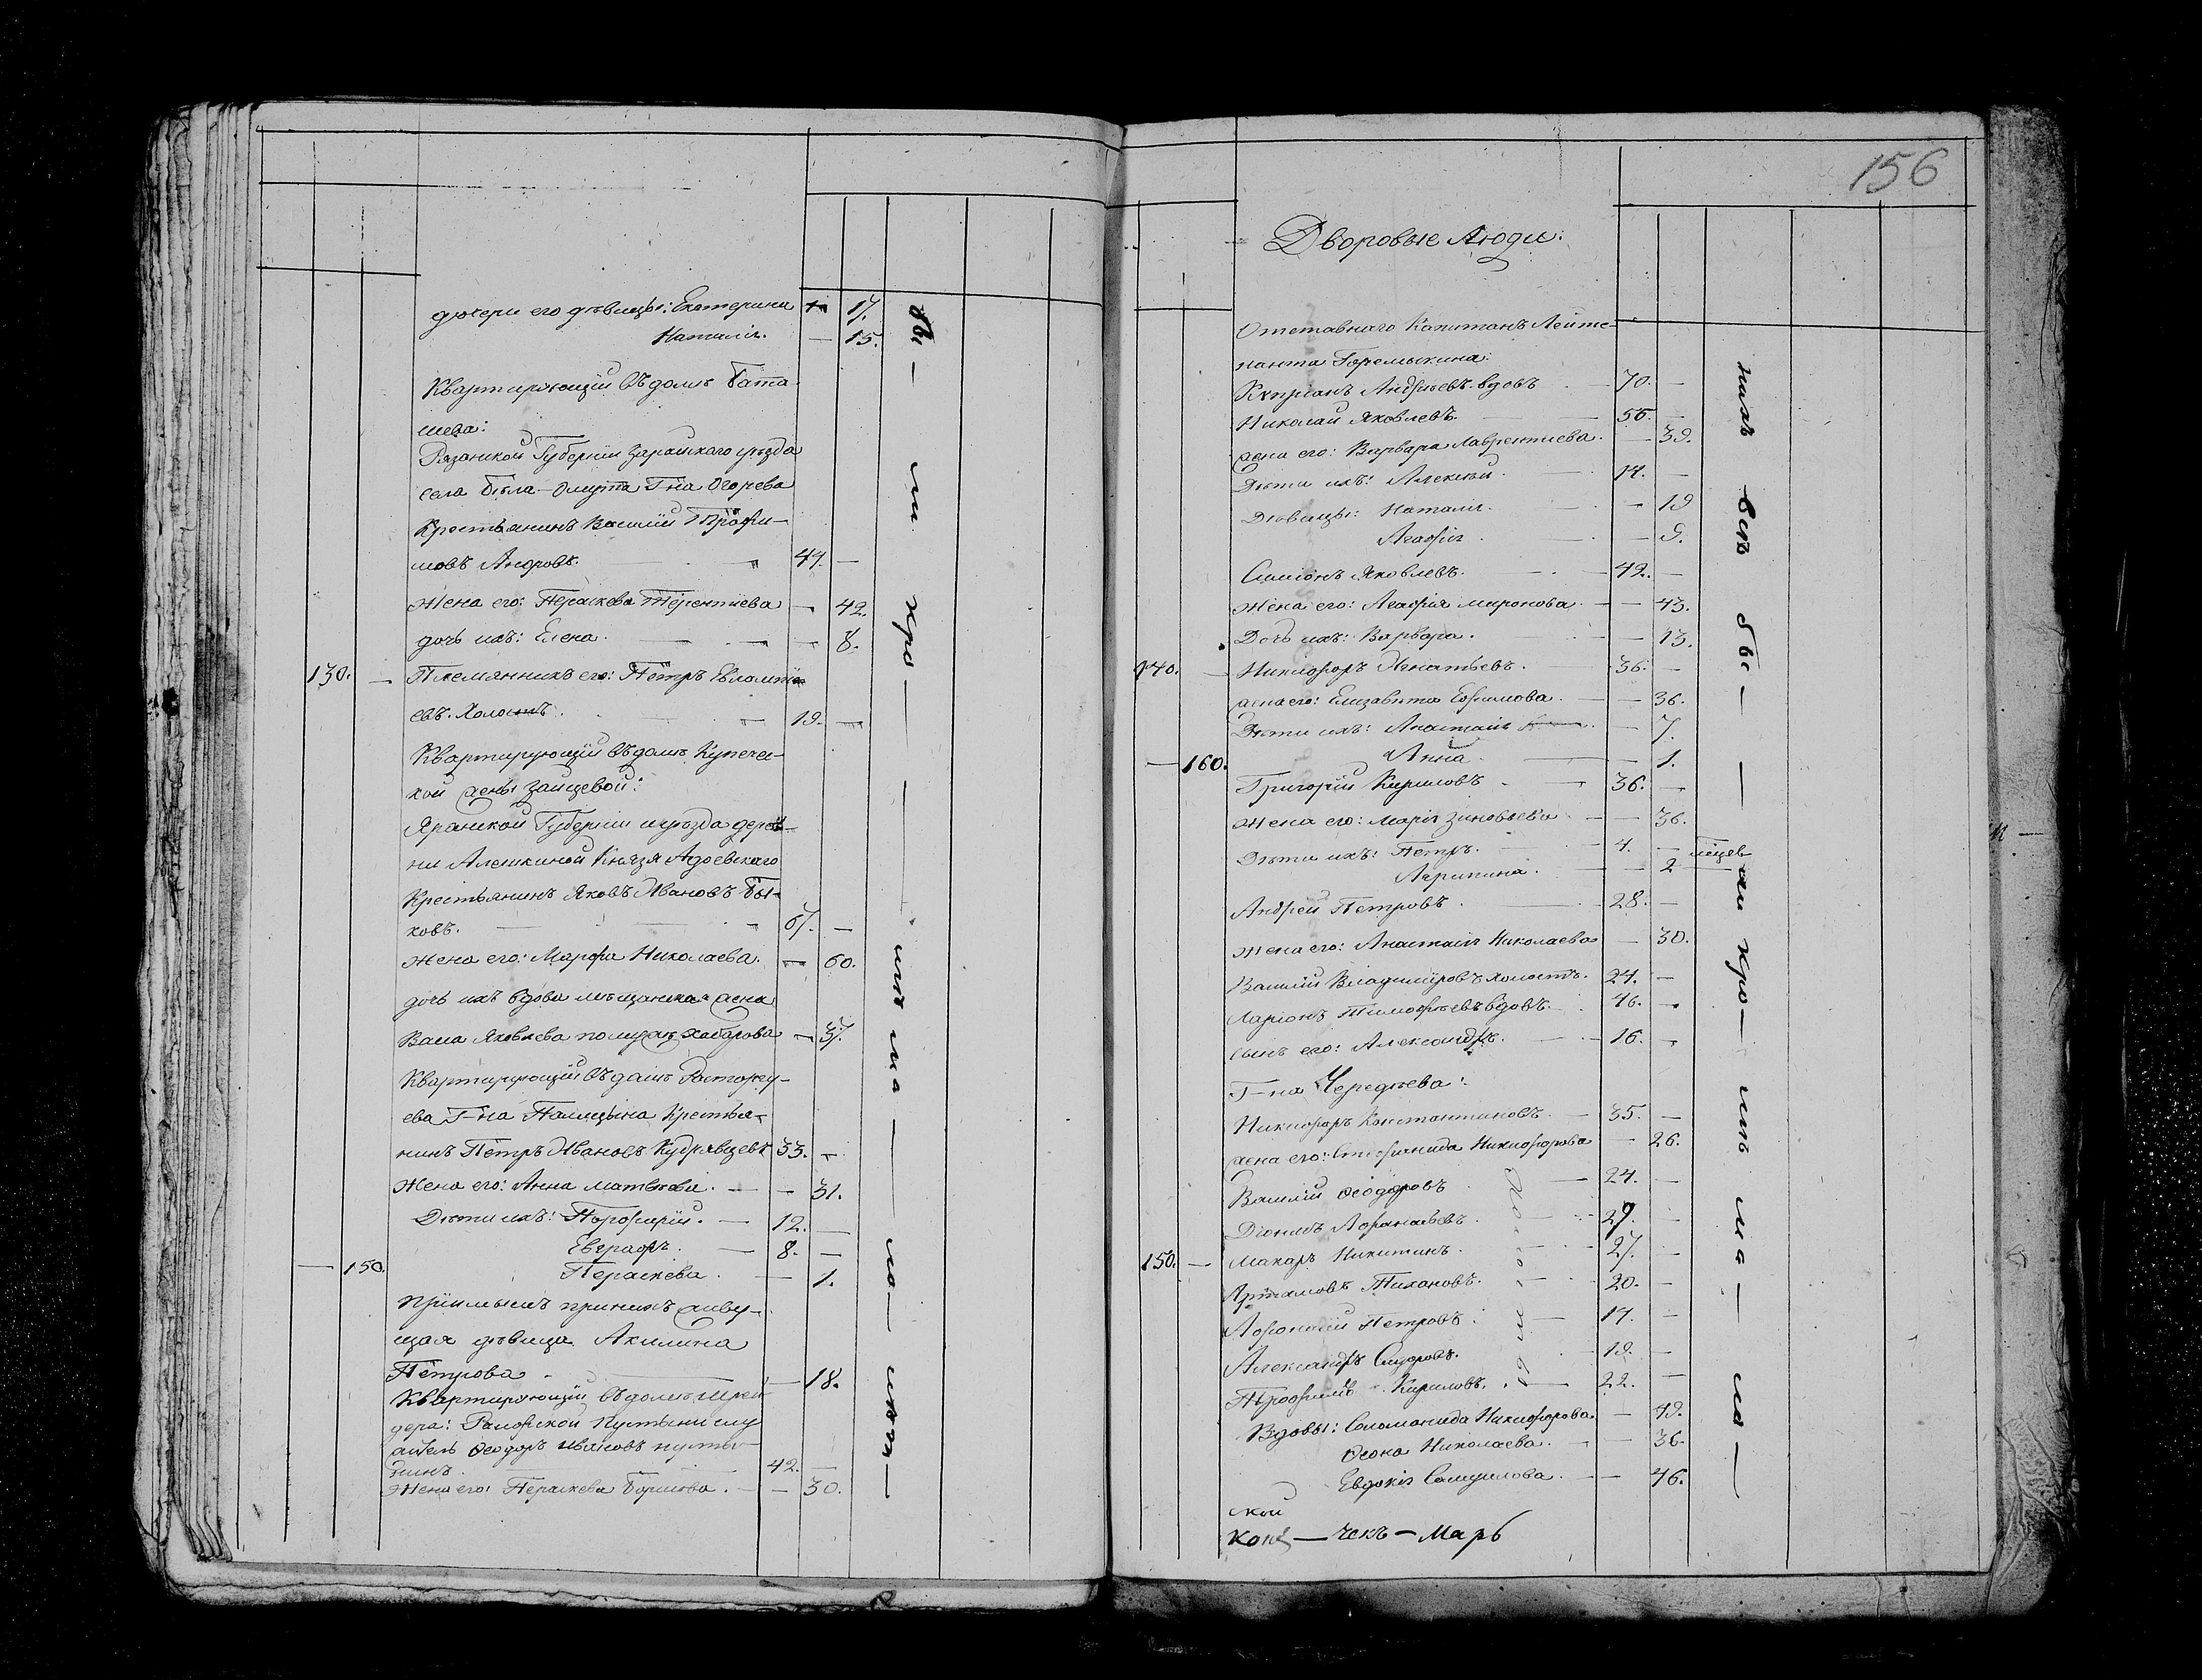 дочери его девицы: Екатерина — 17.
Наталія. — 15.
Квартирующій въ домѣ Бата-
шева:
Рязанской Губерніи Зарайскаго уѣзда
села Бѣла-Омута Г-на Огорева
Крестьянинъ Василій Трофи-
мовъ Андровъ. 47. —
Жена его: Пераскева Терентиева — 42.
дочь ихъ: Елена. — 8.
130. — Племянникъ его: Петръ Евлампи-
евъ. Холостъ. 19. —
Квартирующій въ домѣ Купечес-
кой жены Зайцевой:
Яранской Губерніи и уѣзда дерев-
ни Алешкиной Князя Адоевскаго
Крестьянинъ Яковъ Ивановъ Бы-
ковъ. 67. —
Жена его: Марфа Николаева. — 60.
дочь ихъ вдова мѣщанская жена
Васа Яковлева по мужѣ Хабарова — 37.
Квартирующій въ домѣ Расторгу-
ева Г-на Палицына Крестья-
нинъ Петръ Ивановъ Кудрявцевъ 33. —
Жена его: Анна Матвѣева. — 31.
Дѣти ихъ: Порфирій. — 12. —
Евграфъ. — 8. —
— 150. Пераскева. — 1.
Пріимышъ при нихъ живу-
щая дѣвица Акилина
Петрова — 18.
Квартирующій въ домѣ
дера: пустыни слу
житель Ѳеодоръ Ивановъ
нинъ. 42. —
Жена его: Пераскева Борисова. — 30.
Вы — ли. кро — — имъ ма — ло — лѣт —
156
Дворовые Люди:
Отставнаго Капитанъ Лейте-
нанта Горемыкина:
Кипріанъ Андреевъ. вдовъ 70. —
Николай Яковлевъ 55. —
жена его: Варвара Лаврентиева. — 39.
Дѣти ихъ: Алексѣй. 14. —
Дѣвицы: Наталія. — 19
Агафія. — 9.
Симіонъ Яковлевъ. 42. —
Жена его: Агафія Миронова. — 43.
Дочь ихъ: Варвара. — 13.
140. — Никифоръ Игнатьевъ. 36. —
жена его: Елизавета Ефимова. — 36.
Дѣти ихъ: Анастасія — 7.
— 160. Анна. — 1.
Григорій Кириловъ 36. —
Жена его: Марія Зиновьева — 36.
Дѣти ихъ: Петръ. 4. —
Агрипина. — 2
Андрей Петровъ. 28. —
Жена его: Анастасія Николаева — 30.
Василій Владимировъ холостъ. 24. —
Ларіонъ Тимофѣевъ вдовъ. 46. —
сынъ его: Александръ. 16. —
Г-на Чередѣева:
Никифоръ Константиновъ. 35. —
жена его: Стефанида Никифорова — 26.
Василій Ѳеодоровъ 24. —
Діонисъ Афанасьевъ. 29. —
150. — Макаръ Никитинъ. 27. —
Артамонъ Тихановъ. 20. —
Афонасій Петровъ. 17. —
Александръ Сидоровъ. 19. —
Трофимъ Кириловъ. 22. —
холосты
Вдовы: Соломонида Никифорова. — 49.
Ѳеона Николаева. — 36.
Евдокія Самуилова. — 46.
ской
— чекъ — Марь
нихъ всѣ бы — — ли кро — имъ ма — ло —